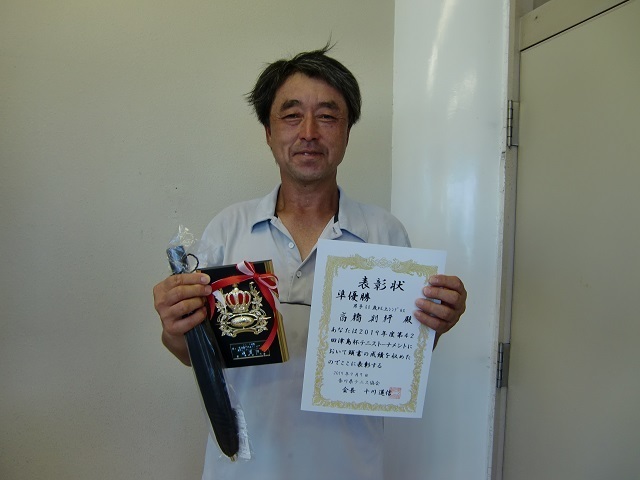 表彰状
準優勝
高橋 殿
あなたは2019年度第42
回津島杯テニストーナメントに
おいて頭書の成績を収めた
のでここに表彰する
香川県テニス協会
会長 十川